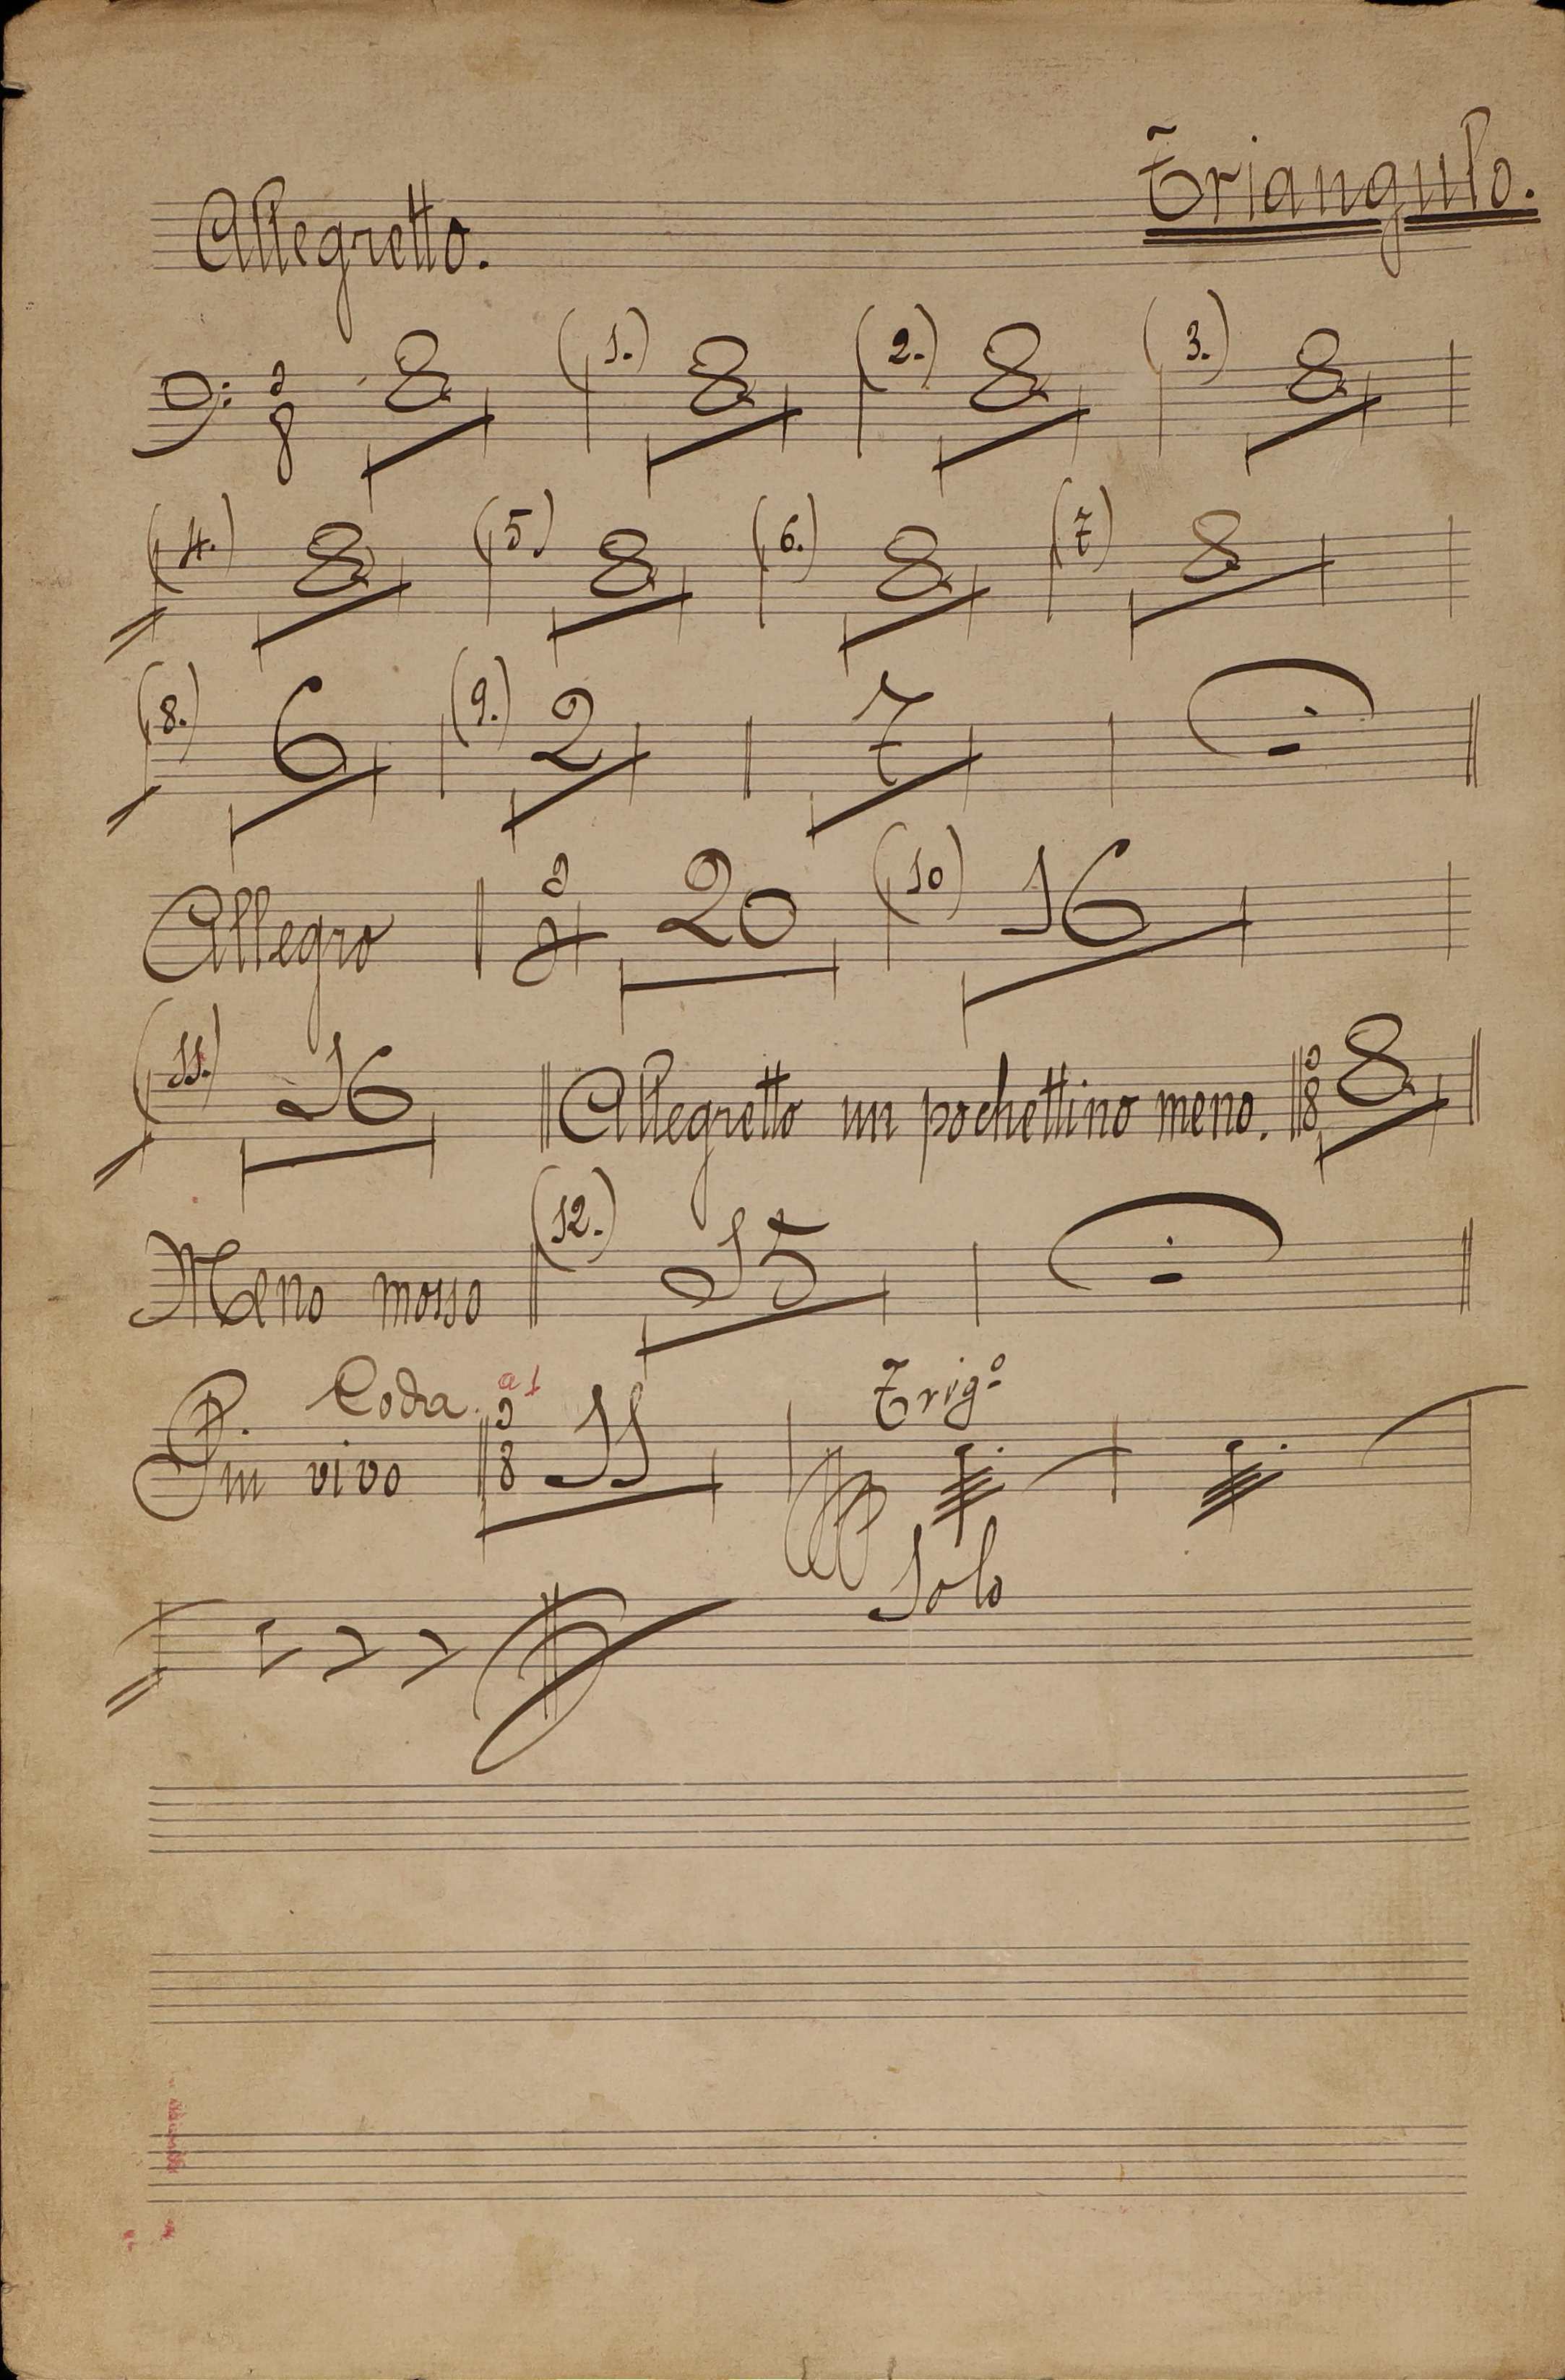 Triangulo.
Allegretto.
3 8 8 (1.) 8 (2.) 8 (3.) 8
(4.) 8 (5.) 8 (6.) 8 (7) 8
(8.) 6 (9.) 2 7
Allegro 20 (10) 16
(11.) 16 Allegretto un pochettino meno. 3 8 8
Meno mosso (12.) 15
Coda. a 1 Trigº
Piu vivo 3 8 11
Solo